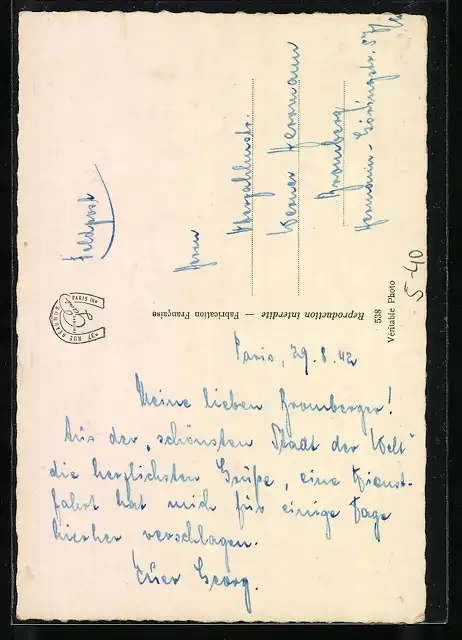 Feldpost
Herrn
Werner Herrmann
Bromberg
Hermann-Göringstr. 57
Reproduction interdite — Fabrication Française
538
Véritable Photo
5-40
Paris, 29.8.42
Meine lieben Bromberger!
Aus der „schönsten Stadt der Welt“
die herzlichsten Grüße, eine Dienst-
fahrt hat mich für einige Tage
hierher verschlagen.
Euer Georg.